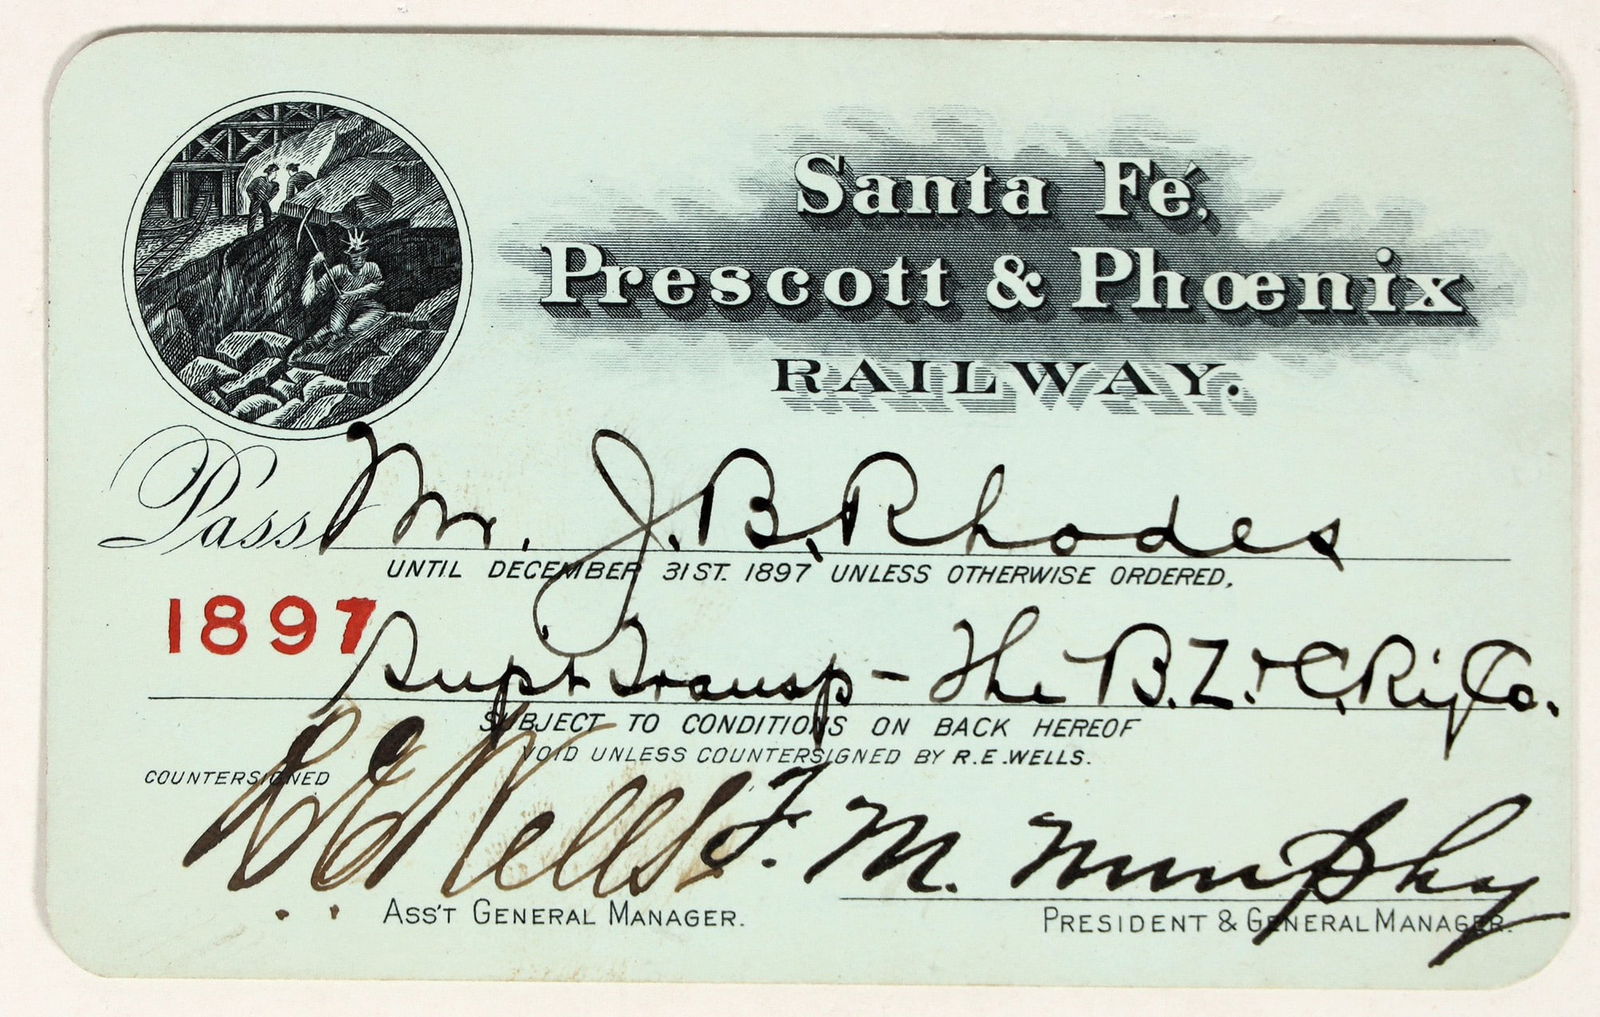 Santa Fé,
Prescott & Phœnix
RAILWAY.
Pass Mr. J. B. Rhodes
UNTIL DECEMBER 31ST. 1897 UNLESS OTHERWISE ORDERED,
1897
Supt Transp - The B. Z. & C. Ry Co.
SUBJECT TO CONDITIONS ON BACK HEREOF
VOID UNLESS COUNTERSIGNED BY R.E.WELLS.
COUNTERSIGNED
R E Wells
F. M. Murphy
ASS'T GENERAL MANAGER.
PRESIDENT & GENERAL MANAGER.